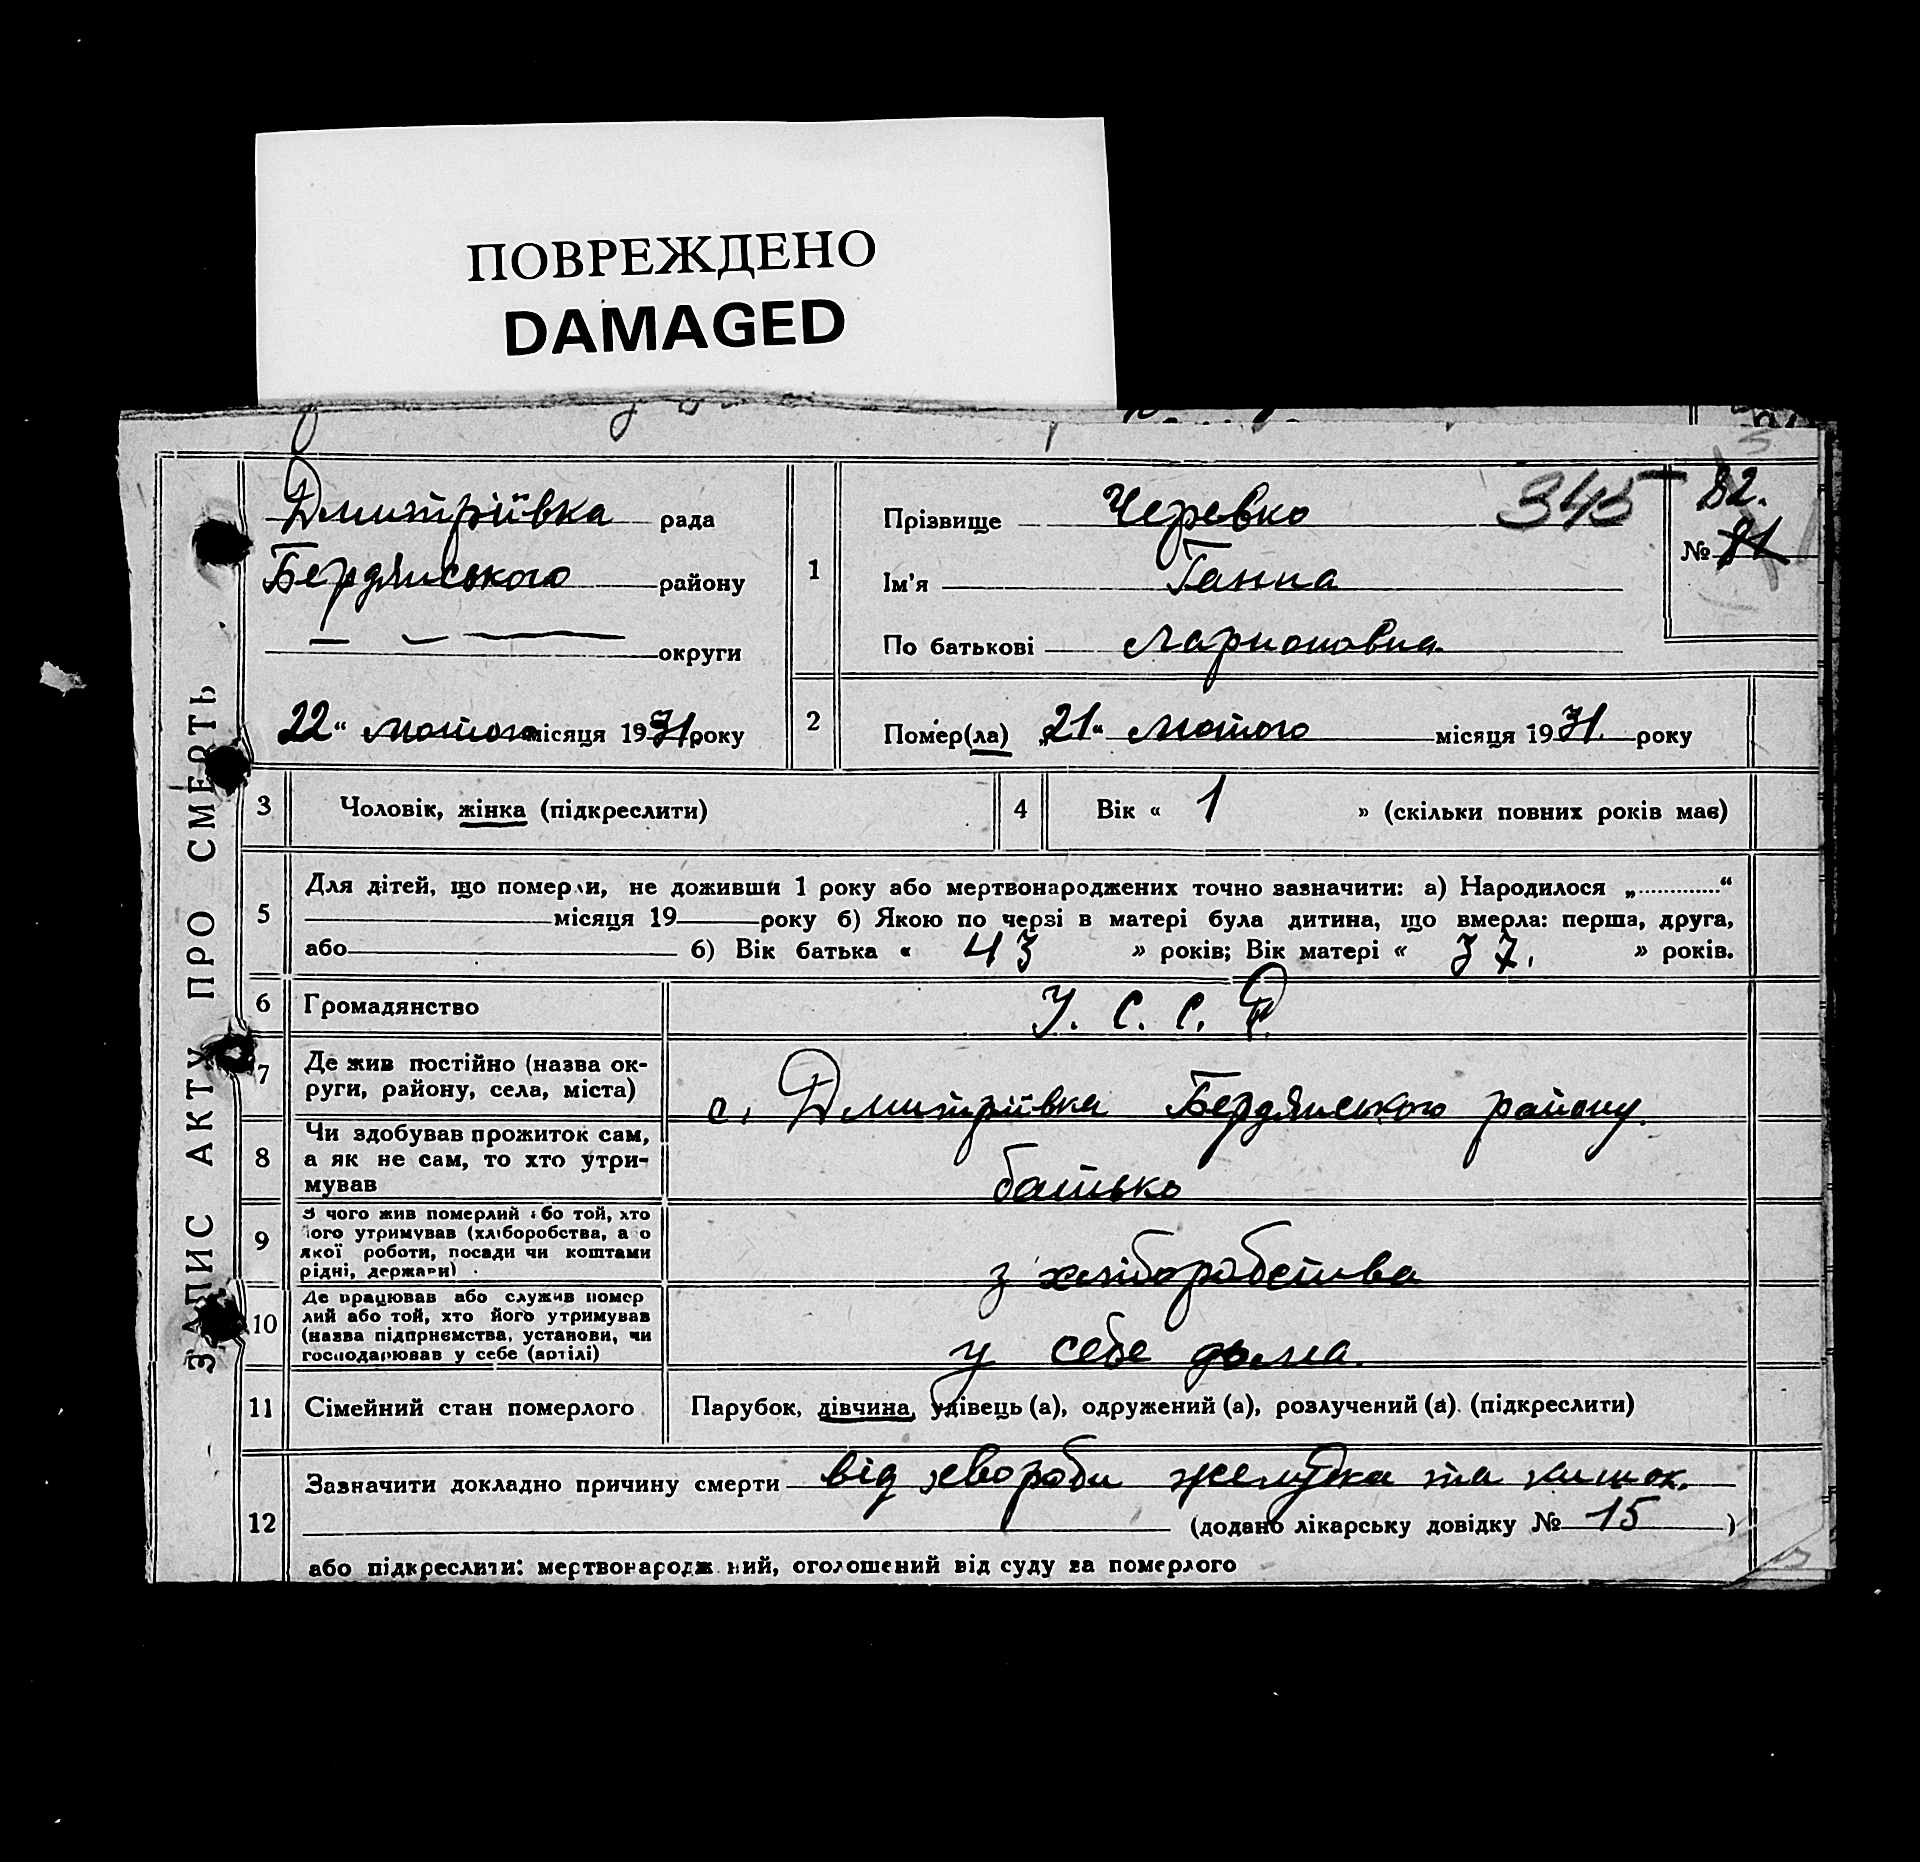 ПОВРЕЖДЕНО
DAMAGED
ЗАПИС АКТУ ПРО СМЕРТЬ
Дмитріївка рада
Бердянського району
округи
22 “ лютого місяця 1931 року
1
Прізвище Черевко 345
Ім'я Ганна
По батькові Ларионовна
82.
№ 81
2
Помер(ла) „21“ лютого місяця 1931. року
3 Чоловік, жінка (підкреслити)
4 Вік « 1 » (скільки повних років має)
5
Для дітей, що померли, не доживши 1 року або мертвонароджених точно зазначити: а) Народилося „............“
місяця 19 року б) Якою по черзі в матері була дитина, що вмерла: перша, друга,
або б) Вік батька « 43 » років; Вік матері « 37. » років.
6 Громадянство У. С. С. Р.
7 Де жив постійно (назва ок-
руги, району, села, міста)
с. Дмитріївка Бердянського району.
8 Чи здобував прожиток сам,
а як не сам, то хто утри-
мував
батько
9 З чого жив померлий або той, хто
його утримував (хліборобства, а о
якої роботи, посади чи коштами
рідні, держави)
з хліборобства
10 Де працював або служив помер
лий або той, хто його утримував
(назва підприємства, установи, чи
господарював у себе (артілі)
у себе дома.
11 Сімейний стан померлого Парубок, дівчина, удівець (а), одружений (а), розлучений (а). (підкреслити)
12
Зазначити докладно причину смерти від хвороби желудка та кишок.
(додано лікарську довідку № 15 )
або підкреслити: мертвонародж ний, оголошений від суду за померлого